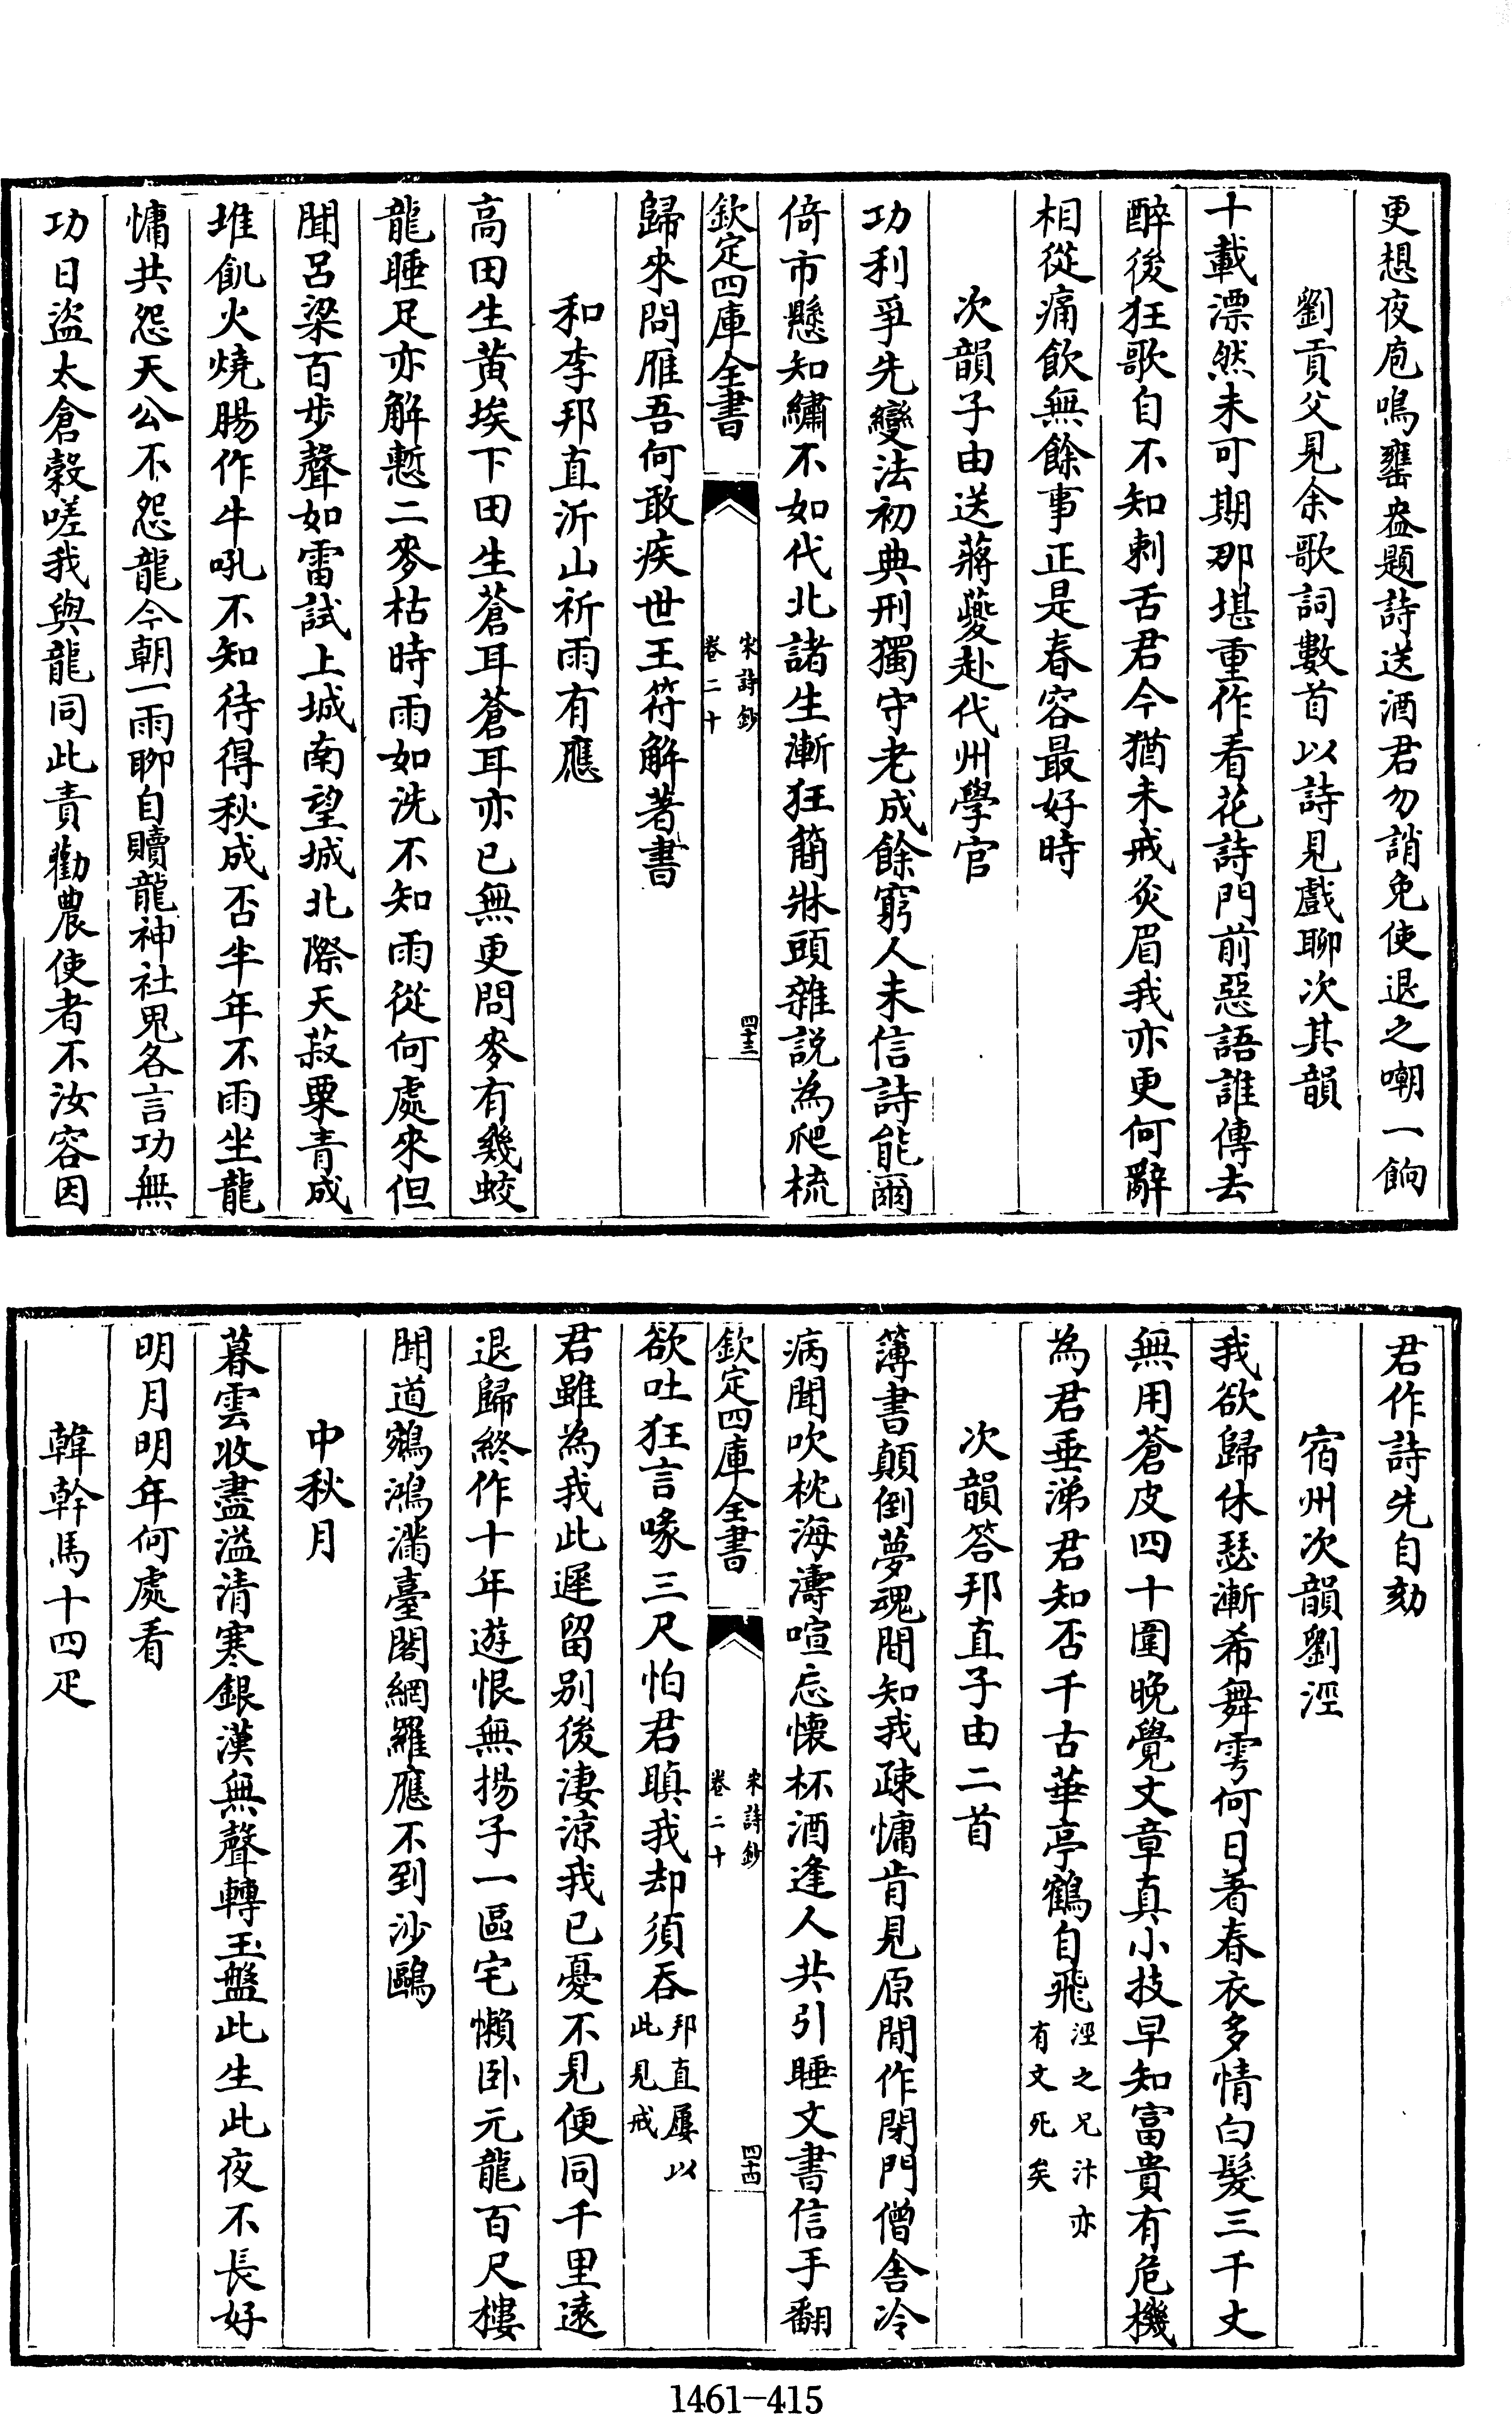 更想夜庖鳴甕盎題詩送酒君勿誚免使退之嘲一餉
劉貢父見余歌詞數首以詩見戲聊次其韻
十載漂然未可期那堪重作看花詩門前惡語誰傳去
醉後狂歌自不知刺舌君今猶未戒灸眉我亦更何辭
相從痛飲無餘事正是春容最好時
次韻子由送蔣夔赴代州學官
功利爭先變法初典刑獨守老成餘窮人未信詩能爾
倚市懸知繡不如代北諸生漸狂簡牀頭雜說為爬梳
欽定四庫全書
宋詩鈔
卷二十
四十三
歸來問雁吾何敢疾世王符解著書
和李邦直沂山祈雨有應
高田生黃埃下田生蒼耳蒼耳亦已無更問麥有幾蛟
龍睡足亦解慙二麥枯時雨如洗不知雨從何處來但
聞呂梁百步聲如雷試上城南望城北際天菽粟青成
堆飢火燒腸作牛吼不知待得秋成否半年不雨坐龍
慵共怨天公不怨龍今朝一雨聊自贖龍神社鬼各言功無
功日盜太倉穀嗟我與龍同此責勸農使者不汝容因
君作詩先自劾
宿州次韻劉涇
我欲歸休瑟漸希舞雩何日著春衣多情白髮三千丈
無用蒼皮四十圍晚覺文章真小技早知富貴有危機
為君垂涕君知否千古華亭鶴自飛涇之兄汴亦
有文死矣
次韻答邦直子由二首
簿書顛倒夢魂間知我疎慵肯見原閒作閉門僧舍冷
病聞吹枕海濤喧忘懷杯酒逢人共引睡文書信手翻
欽定四庫全書
宋詩鈔
卷二十
四十四
欲吐狂言喙三尺怕君瞋我却須吞邦直屢以
此見戒
君雖為我此遲留別後淒涼我已憂不見便同千里遠
退歸終作十年遊恨無揚子一區宅懶臥元龍百尺樓
聞道鵷鴻滿臺閣網羅應不到沙鷗
中秋月
暮雲收盡溢清寒銀漢無聲轉玉盤此生此夜不長好
明月明年何處看
韓幹馬十四疋
1461-415